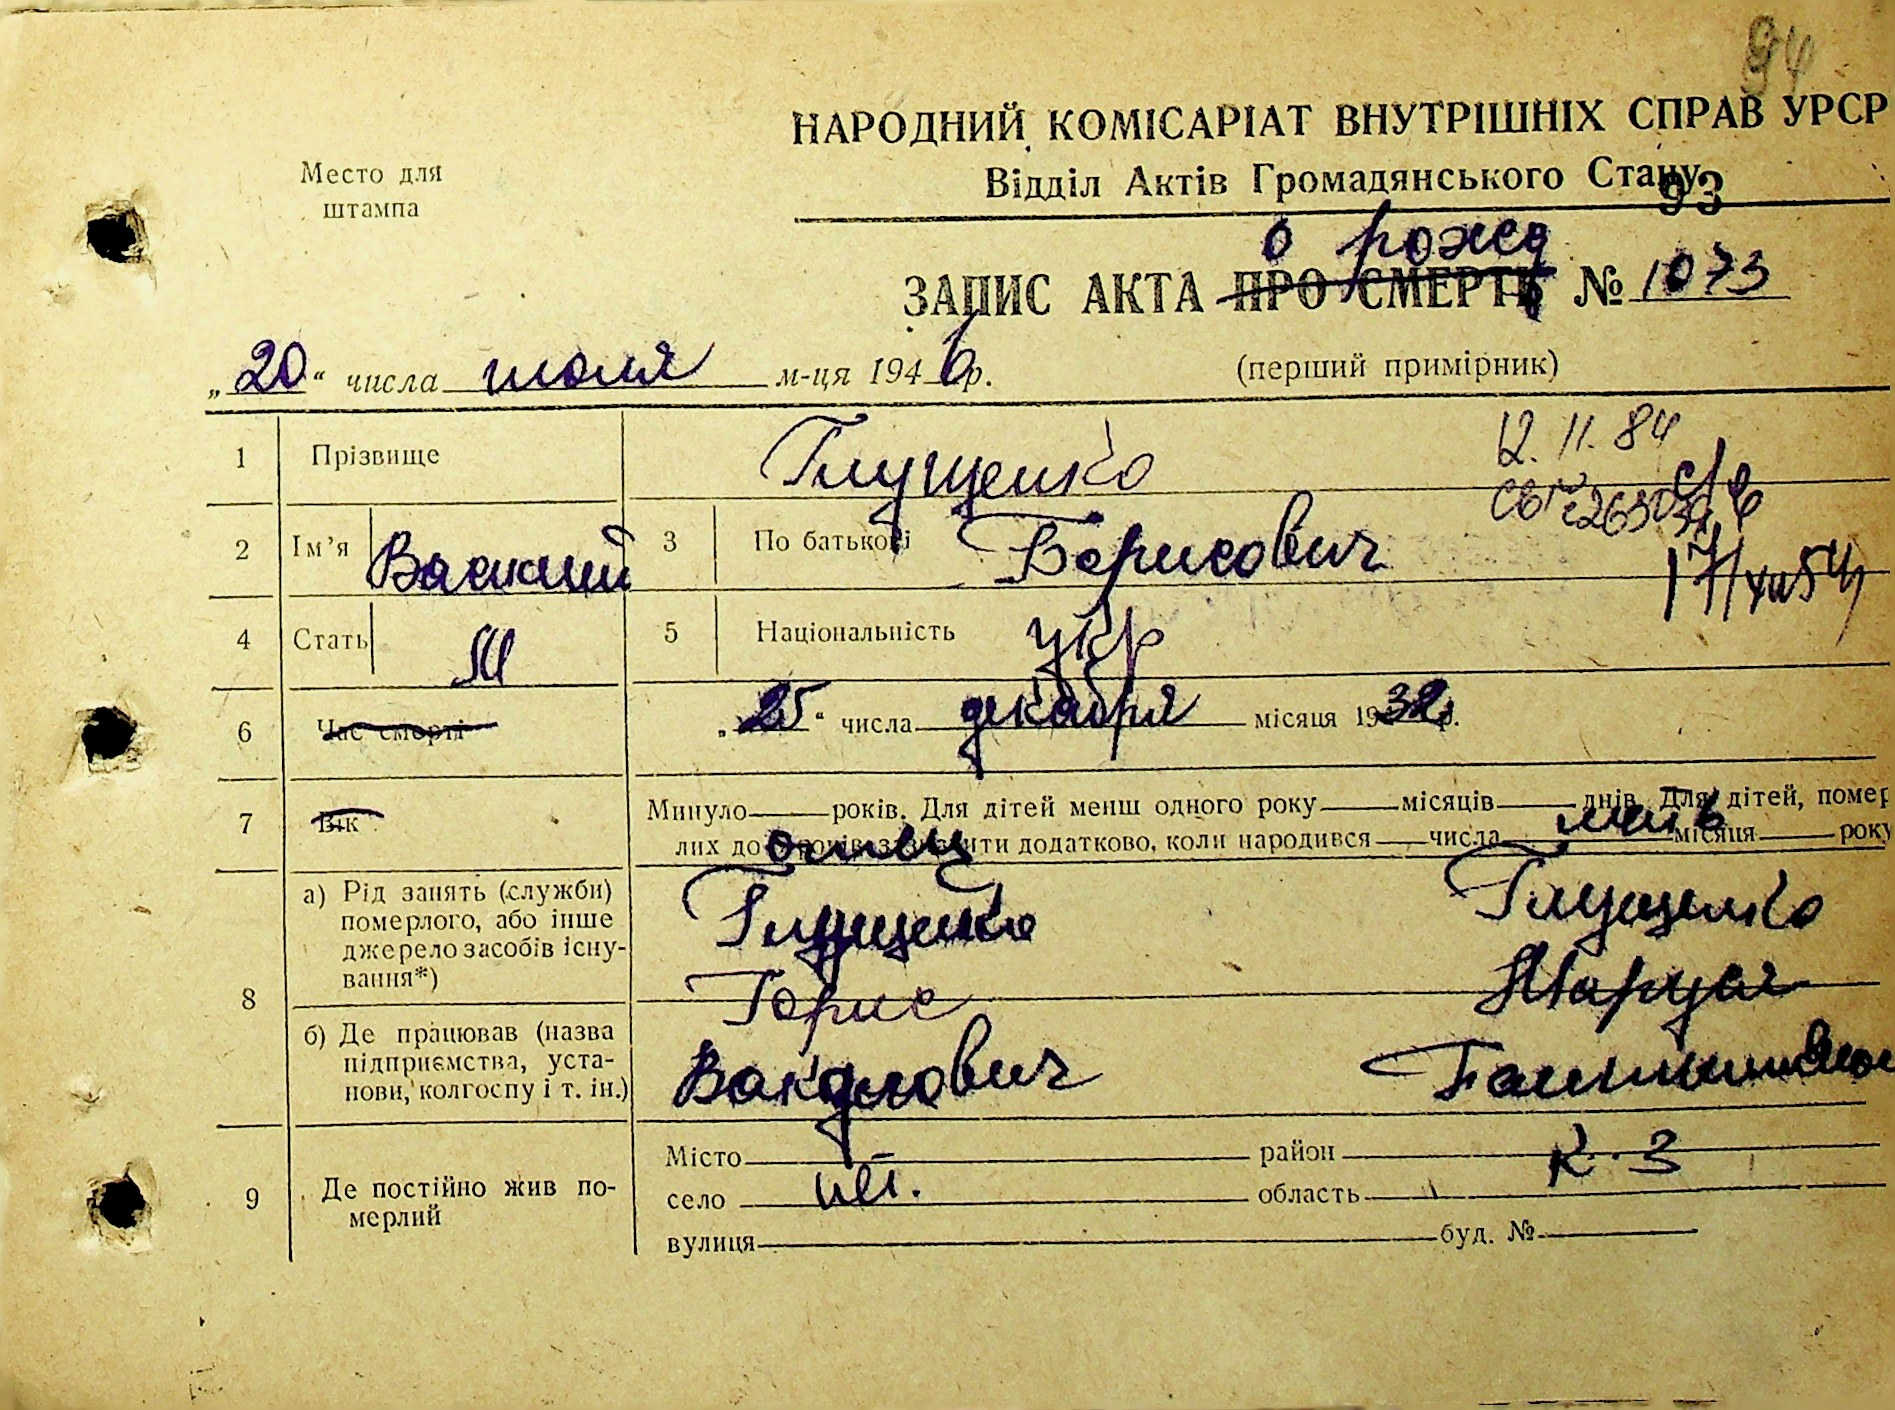 94
НАРОДНИЙ КОМІСАРІАТ ВНУТРІШНІХ СПРАВ УРСР
Відділ Актів Громадянського Стану
93
Место для
штампа
о рожд
ЗАПИС АКТА ПРО СМЕРТЬ № 1073
„20“ числа июля м-ця 1946р.
(перший примірник)
1 Прізвище Глущенко
12.11.84
2 Ім’я Василий 3 По батькові Борисович
4 Стать М 5 Національність укр
6 Час смерті „25“ числа декабря місяця 1932р.
7 Вік Минуло росів. Для дітей менш одного року місяців днів. Для дітей, помер
лих до років зазначити додатково, коли народився числа місяця року
отец мать
8 а) Рід занять (служби)
померлого, або інше
джерело засобів існу-
вання*)
Глущенко Глущенко
Борис Маруся
б) Де працював (назва
підприємства, уста-
нови, колгоспу і т. ін.)
9 Де постійно жив по-
мерлий
Місто район К. З
село область
вулиця буд. №